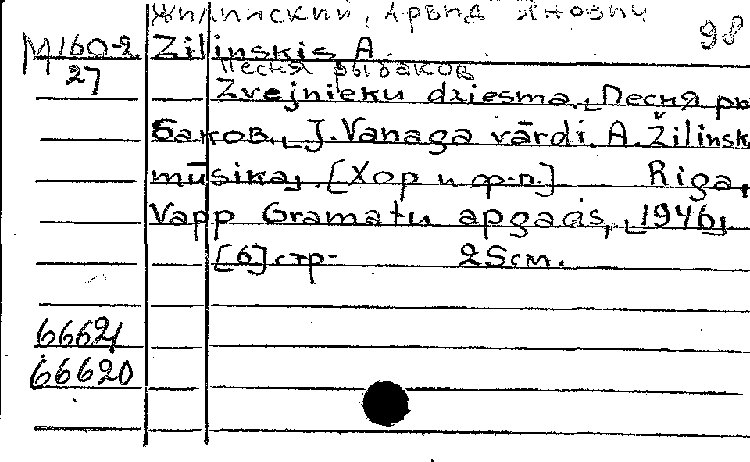 Жилинский, Арвид Янович
98
M160-2
27
Zilinskis A
Песня рыбаков
Zvejnieku dziesma. [Песня ры
баков. [J. Vanaga vārdi. A. Žilinsk
mūsika]. [Хор и ф-п.] Riga,
Vapp Gramatu apgads, [1946]
[6] стр. 25см.
66621
66620